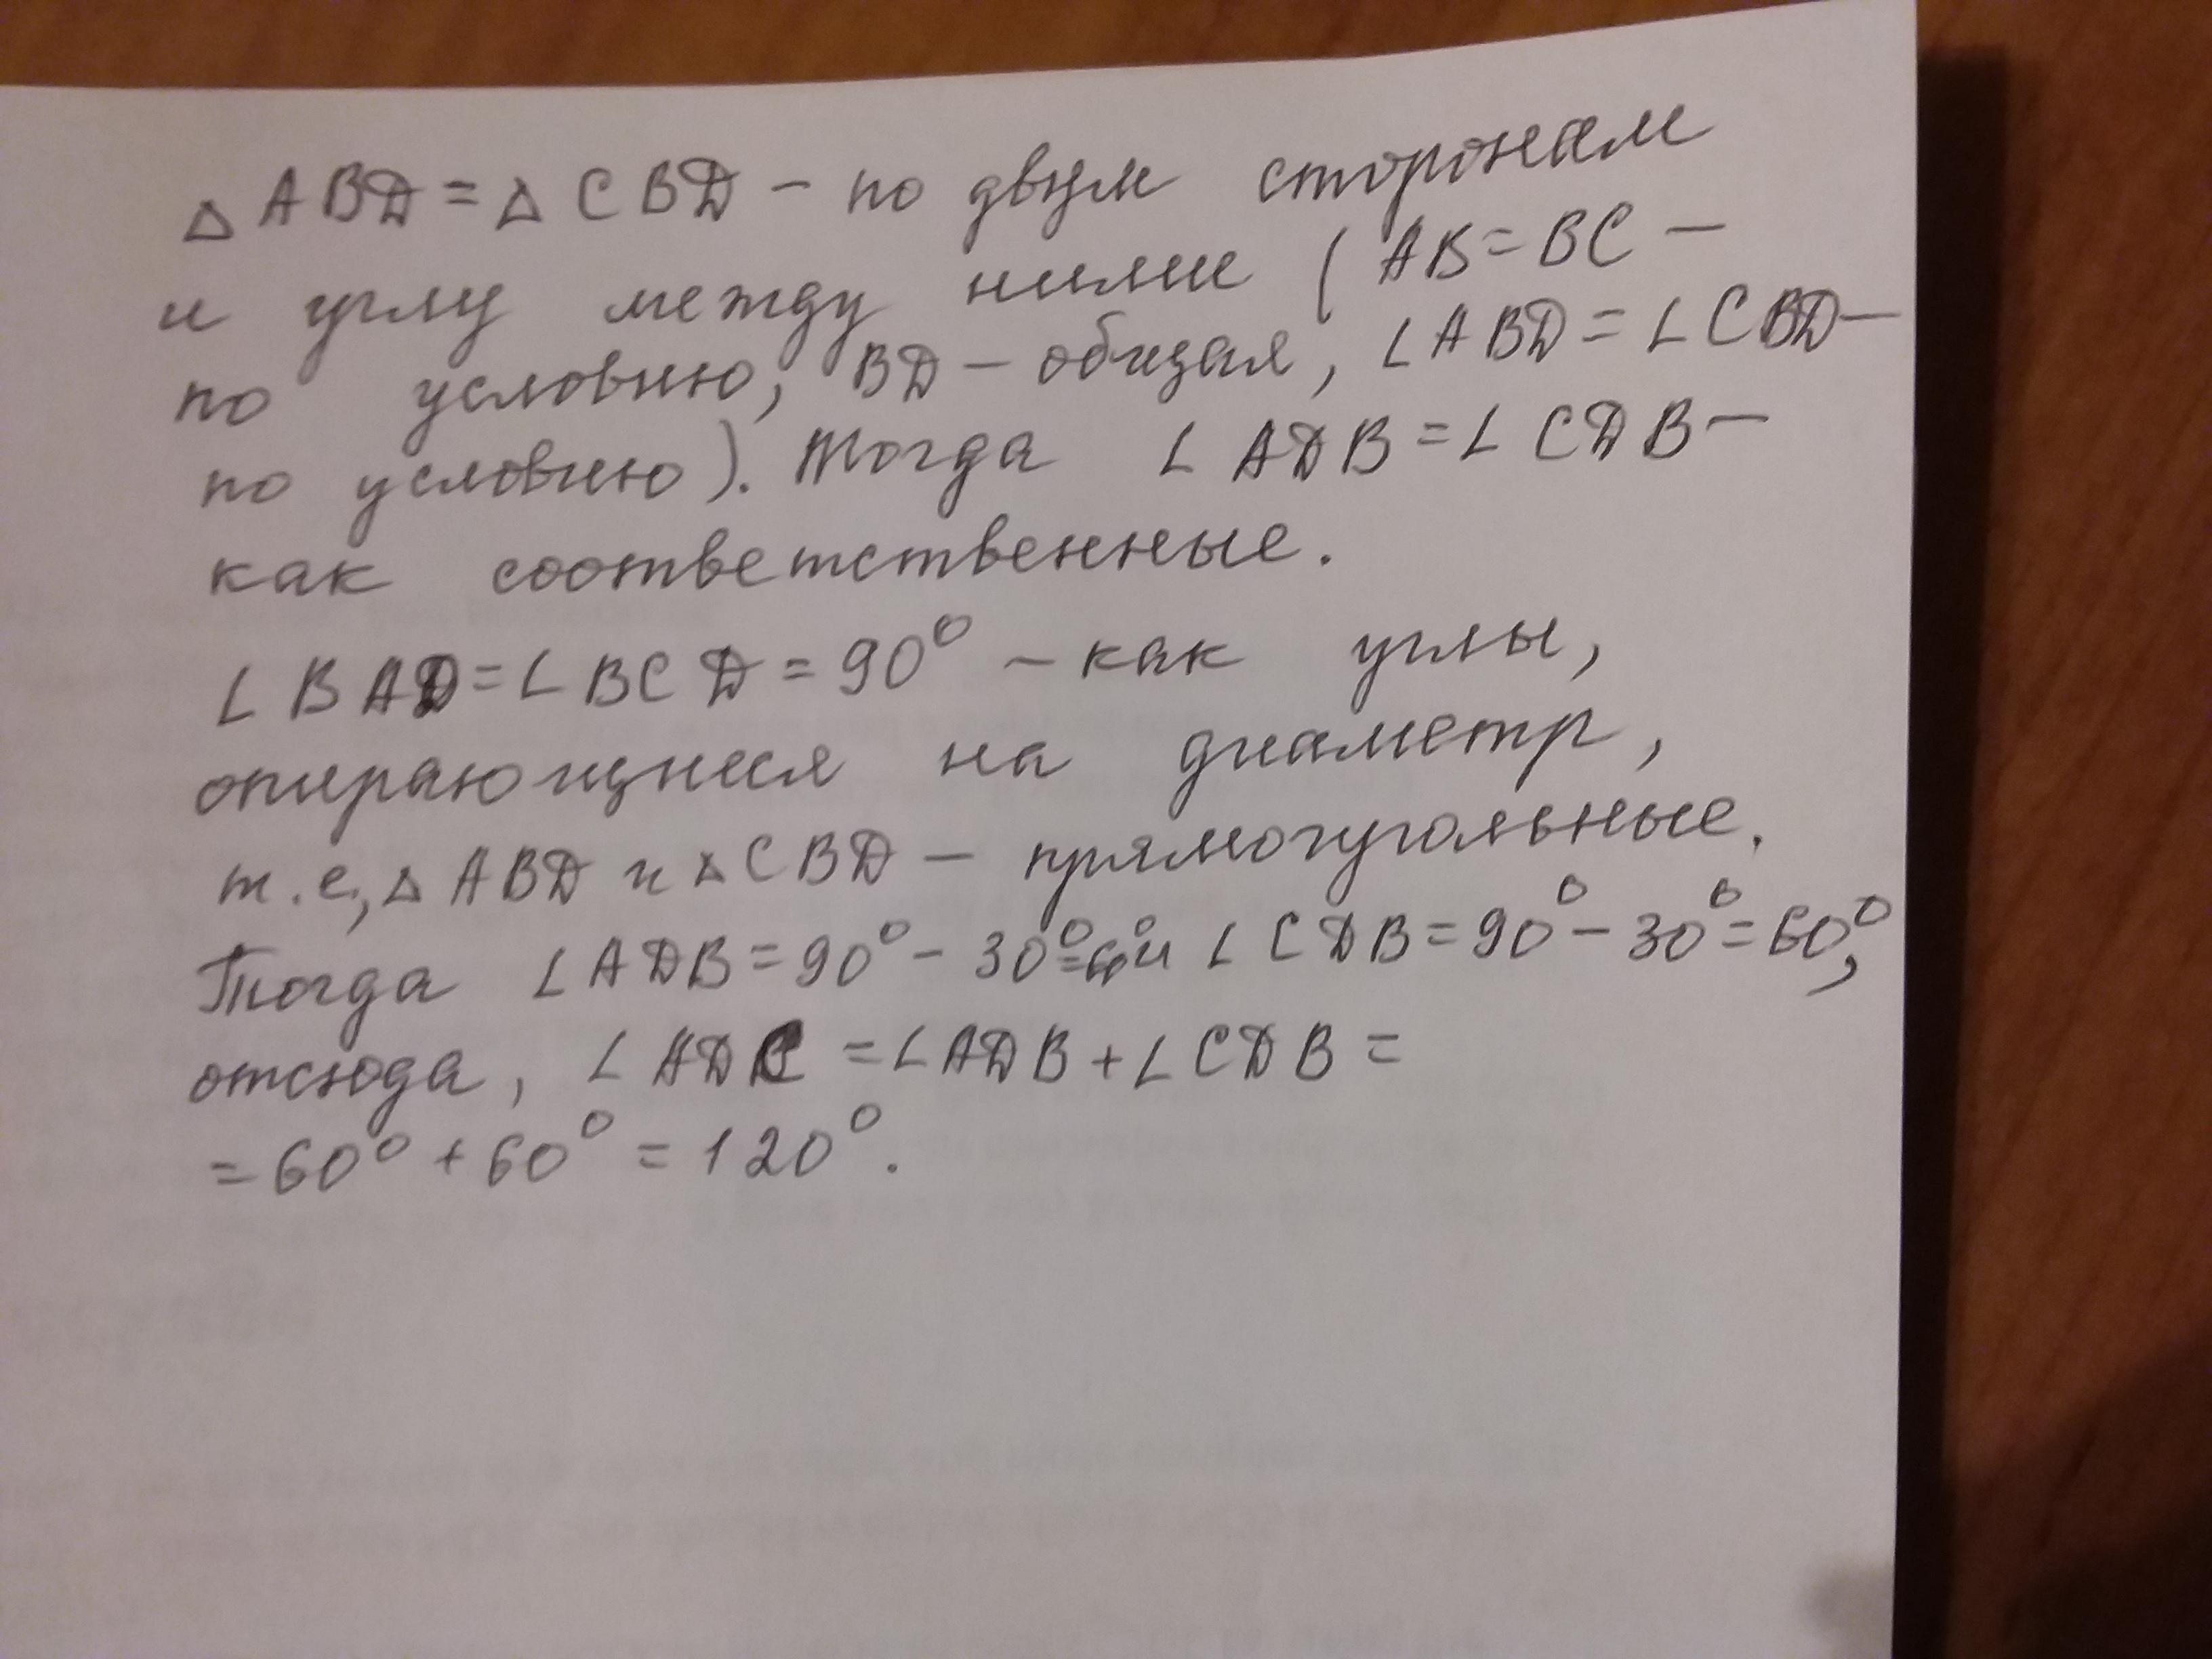 △ ABD = △ CBD - по двум сторонам
и углу между ними ( AB = BC -
по условию, BD - общая, ∠ABD = ∠CBD -
по условию). Тогда ∠ ADB = ∠ CDB -
как соответственные.
∠ BAD = ∠ BCD = 90° - как углы,
опирающиеся на диаметр,
т.е, △ ABD и △ CBD - прямоугольные.
Тогда ∠ADB = 90° - 30° = 60° и ∠ CDB = 90° - 30° = 60°,
отсюда, ∠ ADC = ∠ADB + ∠CDB =
= 60° + 60° = 120°.